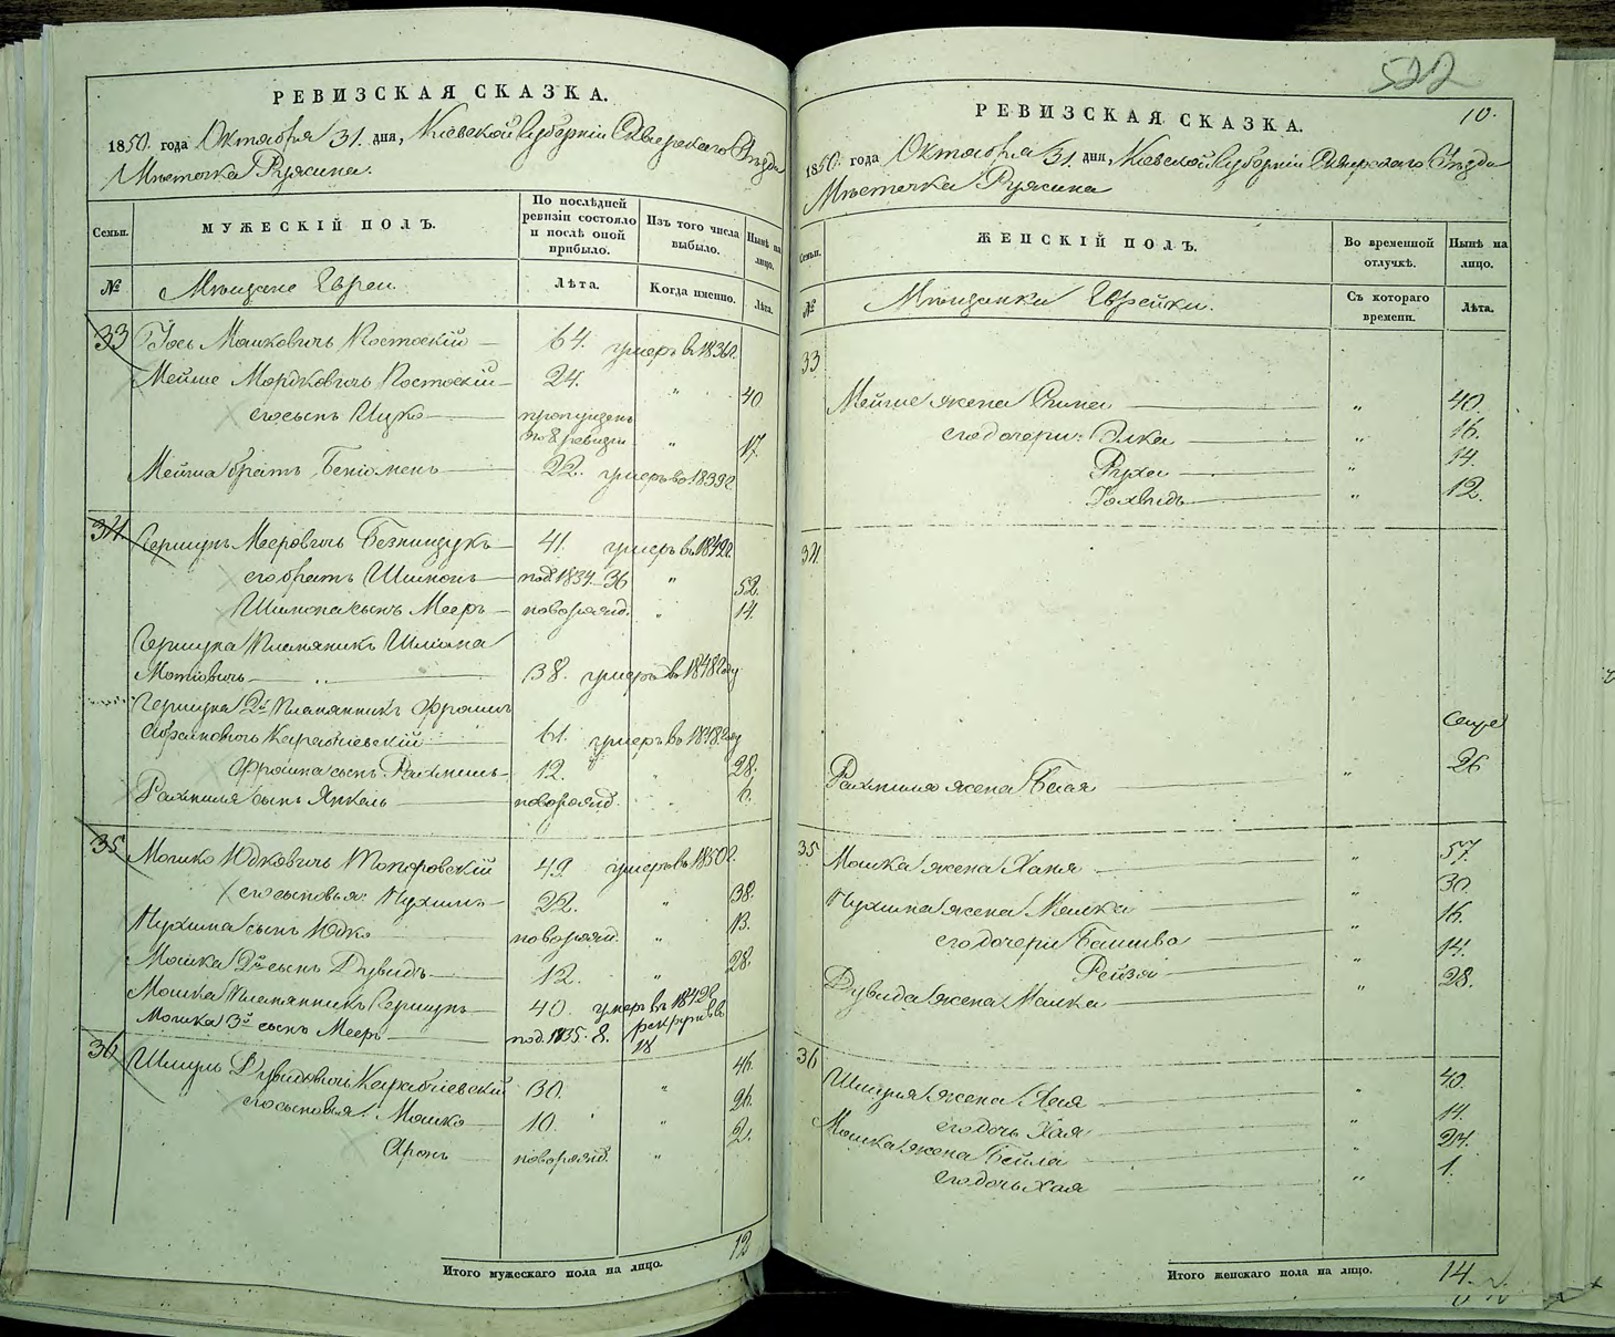 РЕВИЗСКАЯ СКАЗКА.
1850. года Октября 31. дня, Киевской Губерніи Сквирскаго Уѣзда
Мѣстечка Ружина.
Семьи.
МУЖЕСКІЙ ПОЛЪ.
По послѣдней ревизіи состояло и послѣ оной прибыло.
Изъ того числа выбыло.
Нынѣ на лицо.
№
Мѣщане Евреи
Лѣта.
Когда именно.
Лѣта.
33 Іось Мошковичь 64. умеръ в 1836г.
Мейше Мордковичь 24. " 40
его сынъ Ицко пропущенъ
по 8 ревизіи " 17.
Мейша братъ Беніоменъ 22. умеръ во 1839г
34 Гершунъ Мееровичь 41. умеръ въ 1842г
его братъ Шимонъ под. 1834. 36 " 52.
Шимона сынъ Мееръ новорожд. " 14.
Гершуна племяникъ Шліома
Мотіовичь 38. умеръ въ 1848 году
Гершуна 2й племянникъ Фроимъ
Абрамовичь Карабчіевскій 61. умеръ въ 1848 году
Фроима сынъ Рахмиль 12. " 28.
Рахмиля сынъ Янкель новорожд. " 6.
35 Мошко Юдковичь Топоровскій 49 умеръ въ 1850г.
его сыновья: Нухимъ 22. " 38.
Нухима сынъ Юдко новорожд. " 13.
Мошка 2й сынъ Дувидъ 12. " 28.
Мошка племянникъ Гершунъ 40. умеръ въ 1842г
Мошка 3й сынъ Мееръ под. 1835. 8. рекрутъ въ
18
36 Шмуль Дувидовичь Карабчіевскій 30. " 46.
его сыновья: Мошко 10. " 26.
Аронъ новорожд. " 2.
Итого мужескаго пола на лицо. 12
522
РЕВИЗСКАЯ СКАЗКА.
10.
1850. года Октября 31. дня, Киевской Губерніи Сквирскаго Уѣзда
Мѣстечка Ружина
Семьи.
ЖЕНСКІЙ ПОЛЪ.
Во временной отлучкѣ.
Нынѣ на лицо.
№
Мѣщанки Еврейки.
Съ котораго времени.
Лѣта.
33
Мейше жена " 40.
его дочери: Элка " 16.
Рухля " 14.
Іохвидъ " 12.
34
Рахмиля жена Бася " 26
35 Мошка жена Ханя " 57.
Нухима жена " 30.
его дочери Башива " 16.
Рейзя " 14.
Дувида жена Малка " 28.
36
Шмуля жена " 40.
его дочь Хая " 14.
Мошка жена Бейла " 24.
его дочь Хая " 1.
Итого женскаго пола на лицо. 14.